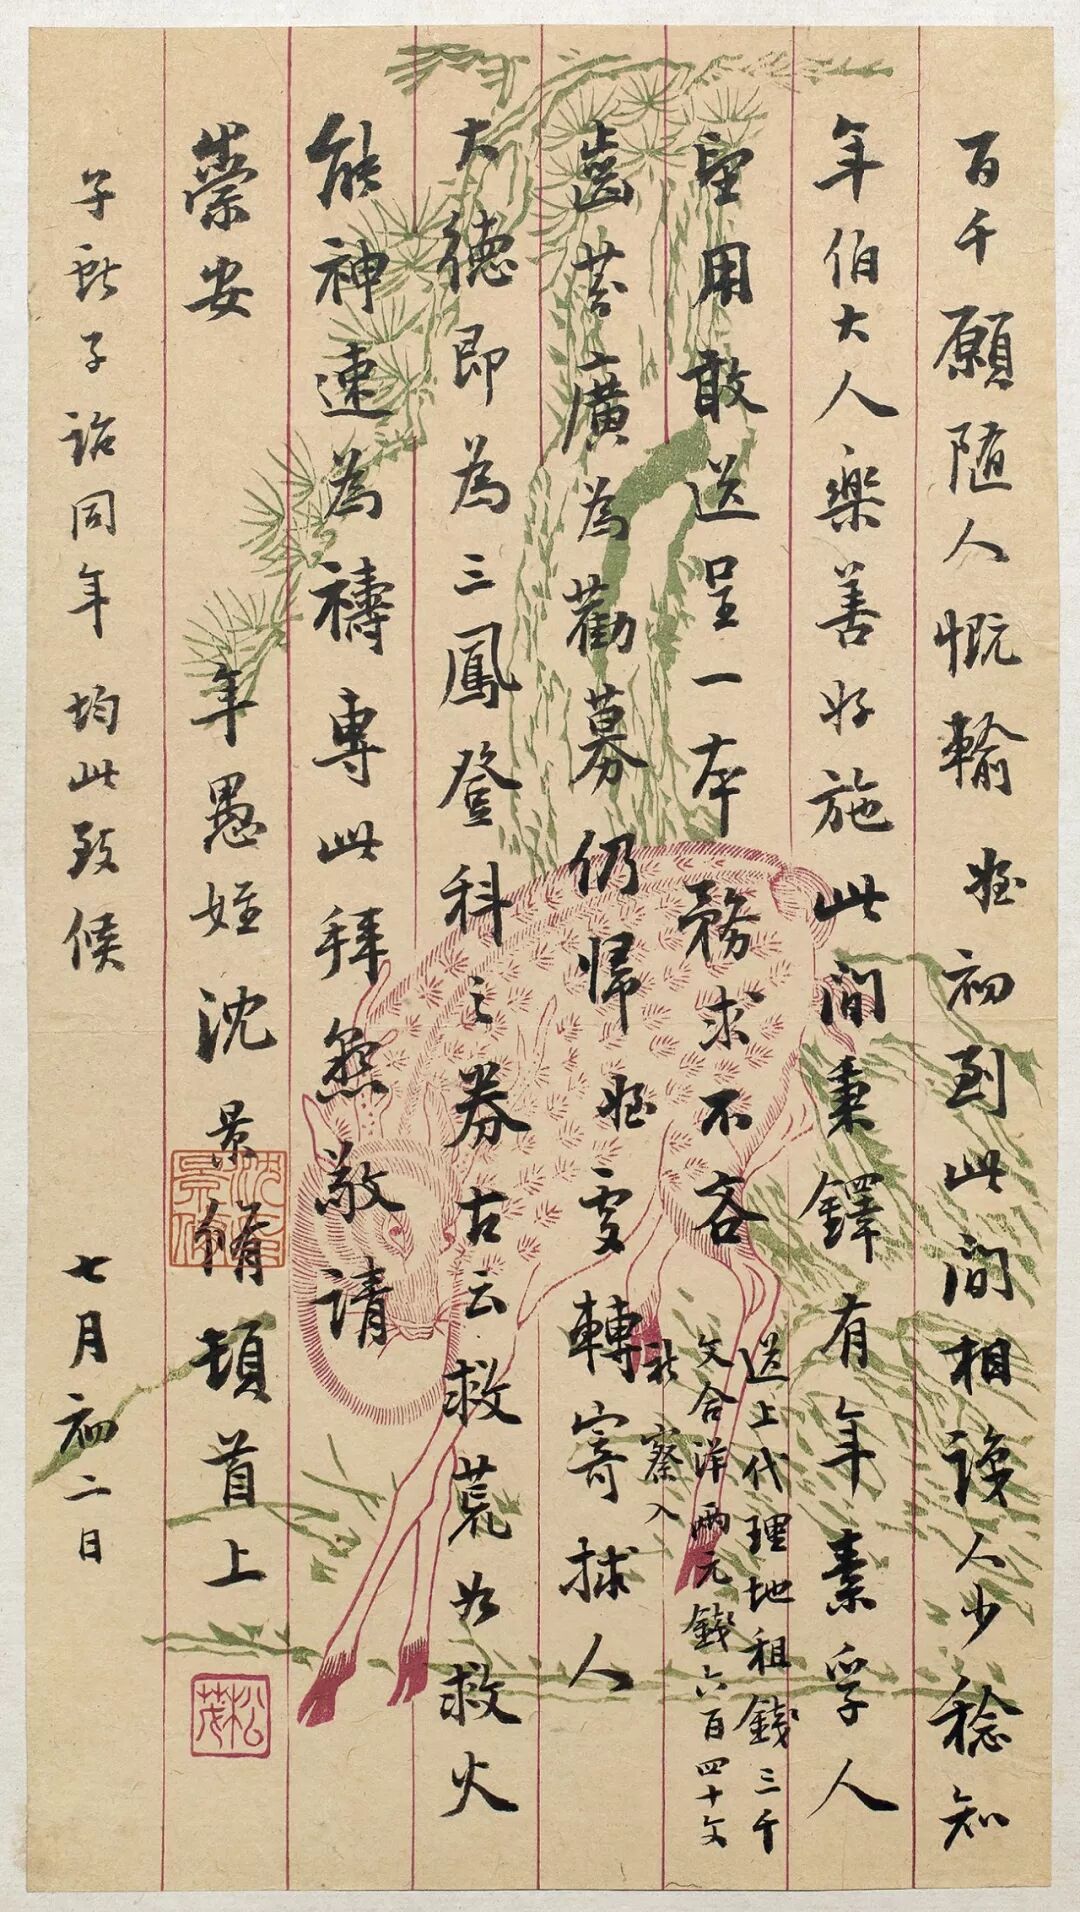 百千願隨人慨輸姪初到此間相識人少稔知
年伯大人樂善好施此間秉鐸有年素孚人
望用敢送呈一本務求不吝
齒芬廣為勸募仍歸姪處轉寄捄人
大德即為三鳳登科之券古云救荒如救火
能神速為禱專此拜懇敬請
崇安
年愚姪沈景脩頓首上
子齡子詒同年 均此致候 七月初二日
送上代理地租錢三千
文合洋兩元錢六百四十文
祈 察入
沈景脩
松茂